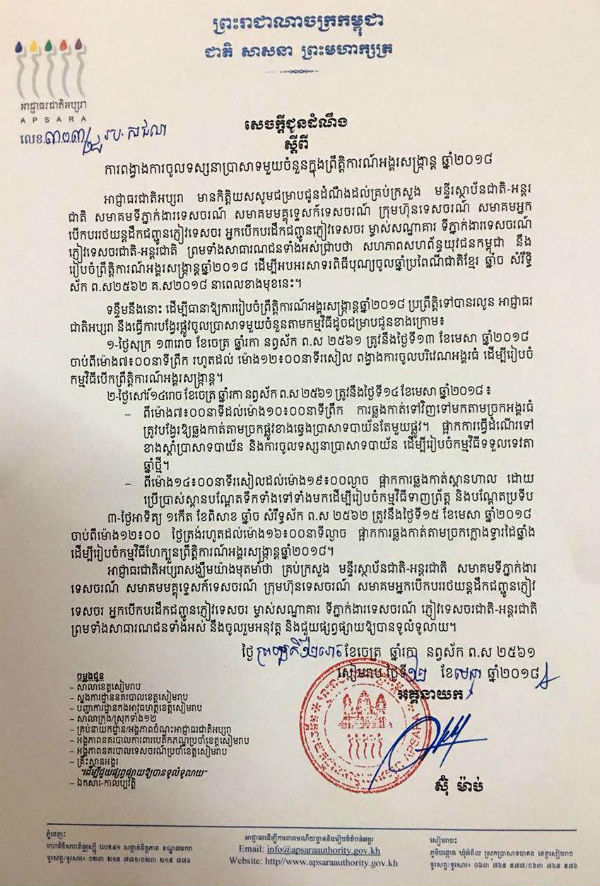 ព្រះរាជាណាចក្រកម្ពុជា
ជាតិ សាសនា ព្រះមហាក្សត្រ
អាជ្ញាធរជាតិអប្សរា
APSARA
លេខ
សេចក្តីជូនដំណឹង
ស្តីពី
ការពង្វាងការចូលទស្សនាប្រាសាទមួយចំនួនក្នុងព្រឹត្តិការណ៍អង្គរសង្ក្រាន្ត ឆ្នាំ២០១៨
អាជ្ញាធរជាតិអប្សរា មានកិត្តិយសសូមជម្រាបជូនដំណឹងដល់គ្រប់ក្រសួង មន្ទីរស្ថាប័នជាតិ-អន្តរ
ជាតិ សមាគមទីភ្នាក់ងារទេសចរណ៍ សមាគមមគ្គុទ្ទេសក៍ទេសចរណ៍ ក្រុមហ៊ុនទេសចរណ៍ សមាគមអ្នក
បើកបររថយន្តដឹកជញ្ជូនភ្ញៀវទេសចរ អ្នកបើកបរដឹកជញ្ជូនភ្ញៀវទេសចរ ម្ចាស់សណ្ឋាគារ ទីភ្នាក់ងារទេសចរណ៍
ភ្ញៀវទេសចរជាតិ-អន្តរជាតិ ព្រមទាំងសាធារណជនទាំងអស់ជ្រាបថា សហភាពសហព័ន្ធយុវជនកម្ពុជា នឹង
រៀបចំព្រឹត្តិការណ៍អង្គរសង្ក្រាន្តឆ្នាំ២០១៨ ដើម្បីអបអរសាទរពិធីបុណ្យចូលឆ្នាំប្រពៃណីជាតិខ្មែរ ឆ្នាំច សំរឹទ្ធិ
ស័ក ព.ស២៥៦២ គ.ស២០១៨ នាពេលខាងមុខនេះ។
ទន្ទឹមនឹងនោះ ដើម្បីធានាឱ្យការរៀបចំព្រឹត្តិការណ៍អង្គរសង្ក្រាន្តឆ្នាំ២០១៨ ប្រព្រឹត្តទៅបានរលូន អាជ្ញាធរ
ជាតិអប្សរា នឹងធ្វើការបង្វែរផ្លូវចូលប្រាសាទមួយចំនួនតាមកម្មវិធីដូចជម្រាបជូនខាងក្រោម៖
១-ថ្ងៃសុក្រ ១៣រោច ខែចេត្រ ឆ្នាំរកា នព្វស័ក ព.ស ២៥៦១ ត្រូវនឹងថ្ងៃទី១៣ ខែមេសា ឆ្នាំ២០១៨
ចាប់ពីម៉ោង៧៖០០នាទីព្រឹក រហូតដល់ ម៉ោង១២៖០០នាទីរសៀល ពង្វាងការចូលបរិវេណអង្គរធំ ដើម្បីរៀបចំ
កម្មវិធីបើកព្រឹត្តិការណ៍អង្គរសង្ក្រាន្ត។
២-ថ្ងៃសៅរ៍១៤រោច ខែចេត្រ ឆ្នាំរកា នព្វស័ក ព.ស ២៥៦១ ត្រូវនឹងថ្ងៃទី១៤ ខែមេសា ឆ្នាំ២០១៨ ៖
– ពីម៉ោង៧៖០០នាទីដល់ម៉ោង១០៖០០នាទីព្រឹក ការឆ្លងកាត់ទៅវិញទៅមកតាមច្រកអង្គរធំ
ត្រូវបង្វែរឱ្យឆ្លងកាត់តាមច្រកផ្លូវខាងឆ្វេងប្រាសាទបាយ័នតែមួយផ្លូវ។ ផ្អាកការធ្វើដំណើរទៅ
ខាងស្តាំប្រាសាទបាយ័ន និងការចូលទស្សនាប្រាសាទបាយ័ន ដើម្បីរៀបចំកម្មវិធីទទួលទេវតា
ឆ្នាំថ្មី។
– ពីម៉ោង១៤៖០០នាទីរសៀលដល់ម៉ោង១៩៖០០ល្ងាច ផ្អាកការឆ្លងកាត់ស្ពានហាល ដោយ
ប្រើប្រាស់ស្ពានបណ្តែតទឹកទាំងទៅទាំងមកដើម្បីរៀបចំកម្មវិធីទាញព្រ័ត្ន និងបណ្តែតប្រទីប
៣-ថ្ងៃអាទិត្យ ១កើត ខែពិសាខ ឆ្នាំច សំរឹទ្ធស័ក ព.ស ២៥៦២ ត្រូវនឹងថ្ងៃទី១៥ ខែមេសា ឆ្នាំ២០១៨
ចាប់ពីម៉ោង១២៖០០ ថ្ងៃត្រង់រហូតដល់ម៉ោង១៦៖០០នាទីល្ងាច ផ្អាកការឆ្លងកាត់តាមច្រកក្លោងទ្វារដៃឆ្នាំង
ដើម្បីរៀបចំកម្មវិធីហែក្បួនព្រឹត្តិការណ៍អង្គរសង្ក្រាន្តឆ្នាំ២០១៨។
អាជ្ញាធរជាតិអប្សរាសង្ឃឹមយ៉ាងមុតមាំថា គ្រប់ក្រសួង មន្ទីរស្ថាប័នជាតិ-អន្តរជាតិ សមាគមទីភ្នាក់ងារ
ទេសចរណ៍ សមាគមមគ្គុទ្ទេសក៍ទេសចរណ៍ ក្រុមហ៊ុនទេសចរណ៍ សមាគមអ្នកបើកបររថយន្តដឹកជញ្ជូនភ្ញៀវ
ទេសចរ អ្នកបើកបរដឹកជញ្ជូនភ្ញៀវទេសចរ ម្ចាស់សណ្ឋាគារ ទីភ្នាក់ងារទេសចរណ៍ ភ្ញៀវទេសចរជាតិ-អន្តរជាតិ
ព្រមទាំងសាធារណជនទាំងអស់ នឹងចូលរួមអនុវត្ត និងជួយផ្សព្វផ្សាយឱ្យបានទូលំទូលាយ។
ថ្ងៃ ព្រហស្បតិ៍ ១២រោច ខែចេត្រ ឆ្នាំរកា នព្វស័ក ព.ស ២៥៦១
សៀមរាប ថ្ងៃទី១២ ខែមេសា ឆ្នាំ២០១៨
អគ្គនាយក
APSARA
ស៊ុំ ម៉ាប់
ចម្លងជូន
– សាលាខេត្តសៀមរាប
– ស្នងការដ្ឋាននគរបាលខេត្តសៀមរាប
– បញ្ជាការដ្ឋានកងរាជអាវុធហត្ថខេត្តសៀមរាប
– សាលាក្រុង/ស្រុកទាំង១២
– គ្រប់នាយកដ្ឋាន/អង្គភាពចំណុះអាជ្ញាធរជាតិអប្សរា
– អង្គភាពនគរបាលការពារបេតិកភណ្ឌប្រចាំខេត្តសៀមរាប
– អង្គភាពនគរបាលទេសចរណ៍ប្រចាំខេត្តសៀមរាប
– គ្រឹះស្ថានអង្គរ
"ដើម្បីជួយផ្សព្វផ្សាយឱ្យបានទូលំទូលាយ"
– ឯកសារ-កាលប្បវត្តិ
ភ្នំពេញ:
អាជ្ញាធរដើម្បីការពារតំបន់ស្ថាននិងរៀបចំតំបន់អង្គរ
Email: info@apsaraauthority.gov.kh
Website: http//www.apsaraauthority.gov.kh
សៀមរាប: